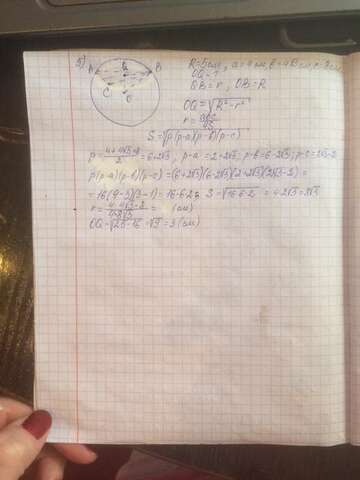 5)
A
Q
B
C
O
R=5см, a=4см, b=4√3см
OQ-?
QB=r, OB=R
OQ=√R²-r²
r=abc/4S
S=√p(p-a)(p-b)(p-c)
p= /2=6+2√3, p-a=2+2√3; p-b=6-2√3; p-c=2√3-2
p(p-a)(p-b)(p-c)=(6+2√3)(6-2√3)(2+2√3)(2√3-2)=
=16(9-3)(3-1)=16·6·2; S=√16·6·2 =4·2√3=8√3
r= = (см)
OQ=√25-16=√9=3(см)